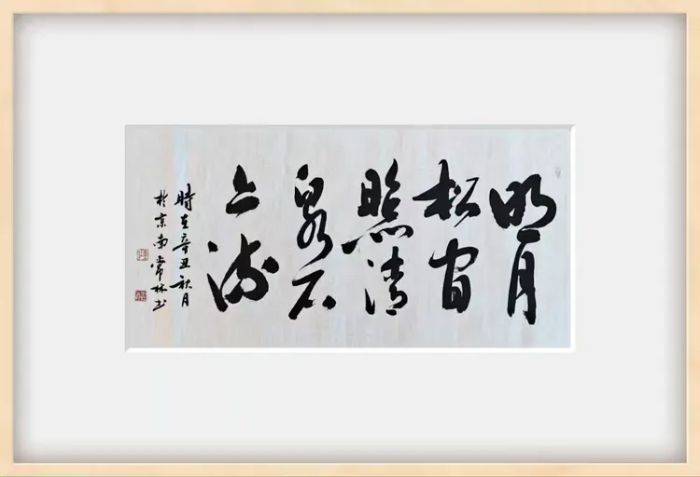 明月
松间
照清
泉石
上流
時在辛丑秋月
於京南常林书